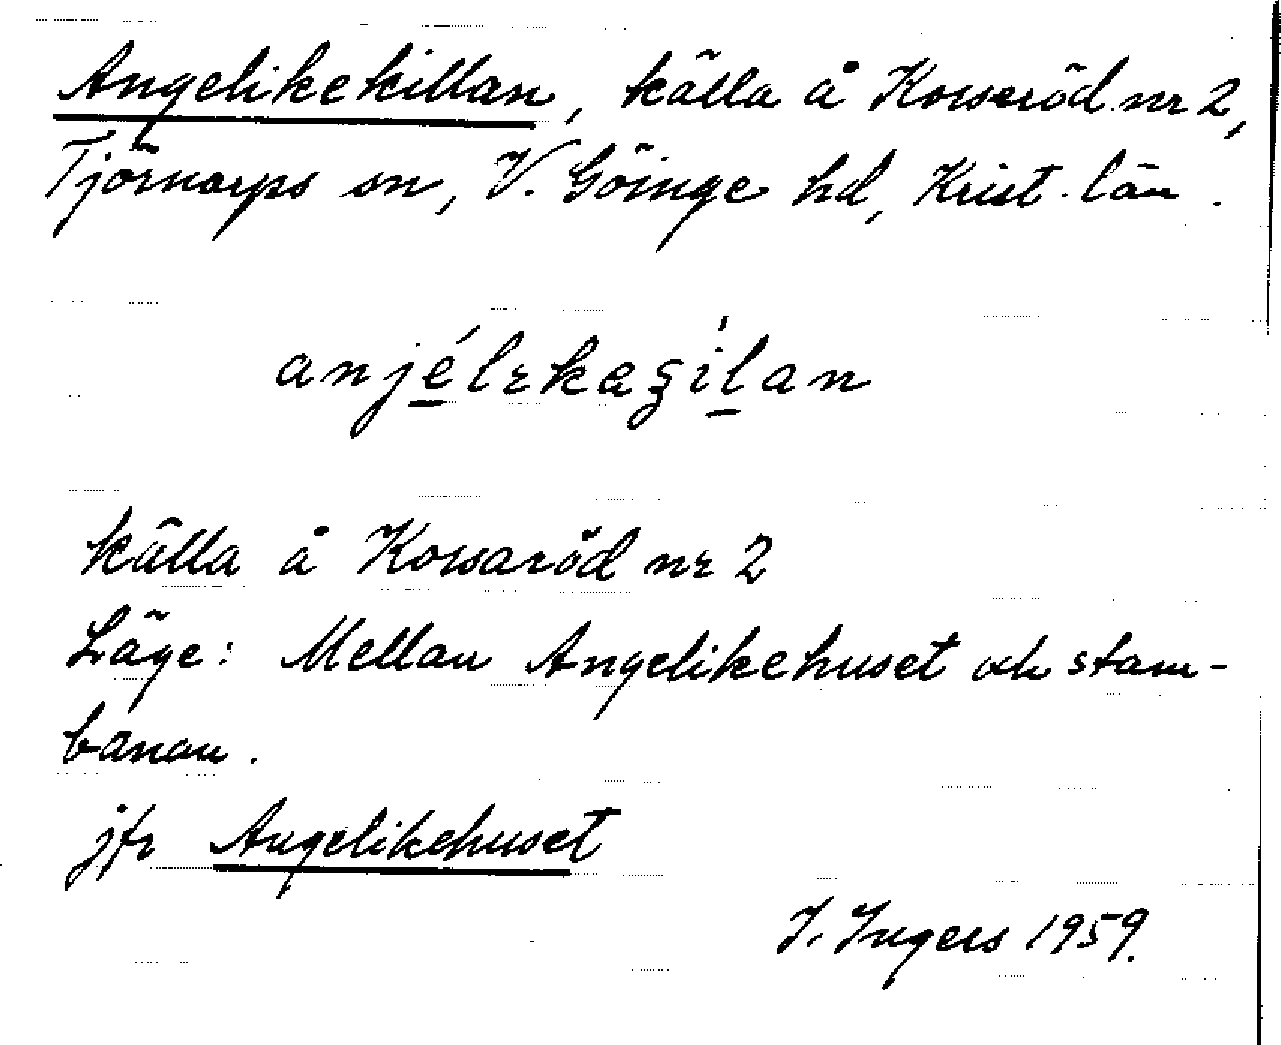 Angelikekillan, källa å Korsaröd nr 2,
Tjörnarps sn, V. Göinge hd, Krist. län.
källa å Korsaröd nr 2
Läge: Mellan Angelikehuset och stam-
banan.
jfr Angelikehuset
I. Ingers 1959.